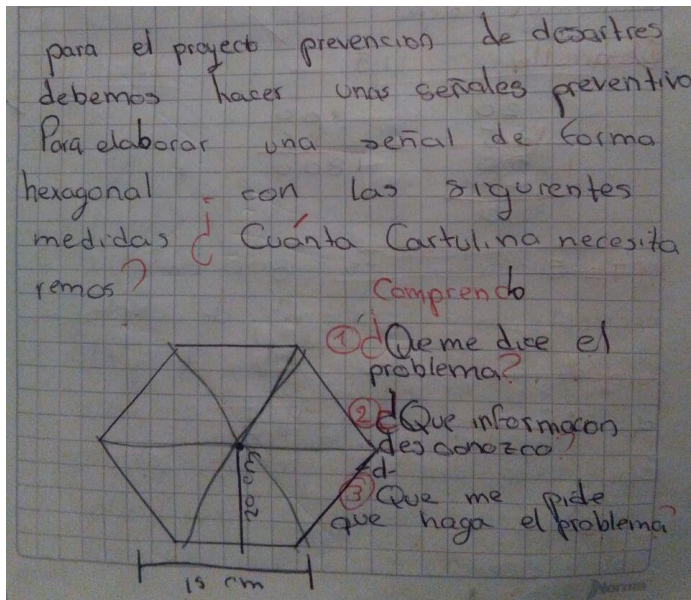 para el proyecto prevencion de desartres
debemos hacer unas señales preventivo
Para elaborar una señal de forma
hexagonal con las siguientes
medidas ¿ Cuánta Cartulina necesita
remos?
Comprendo
① ¿Que me dice el
problema?
② ¿Que informacon
desconozco?
③ Que me pide
que haga el problema?
20 cm
15 cm
Norma